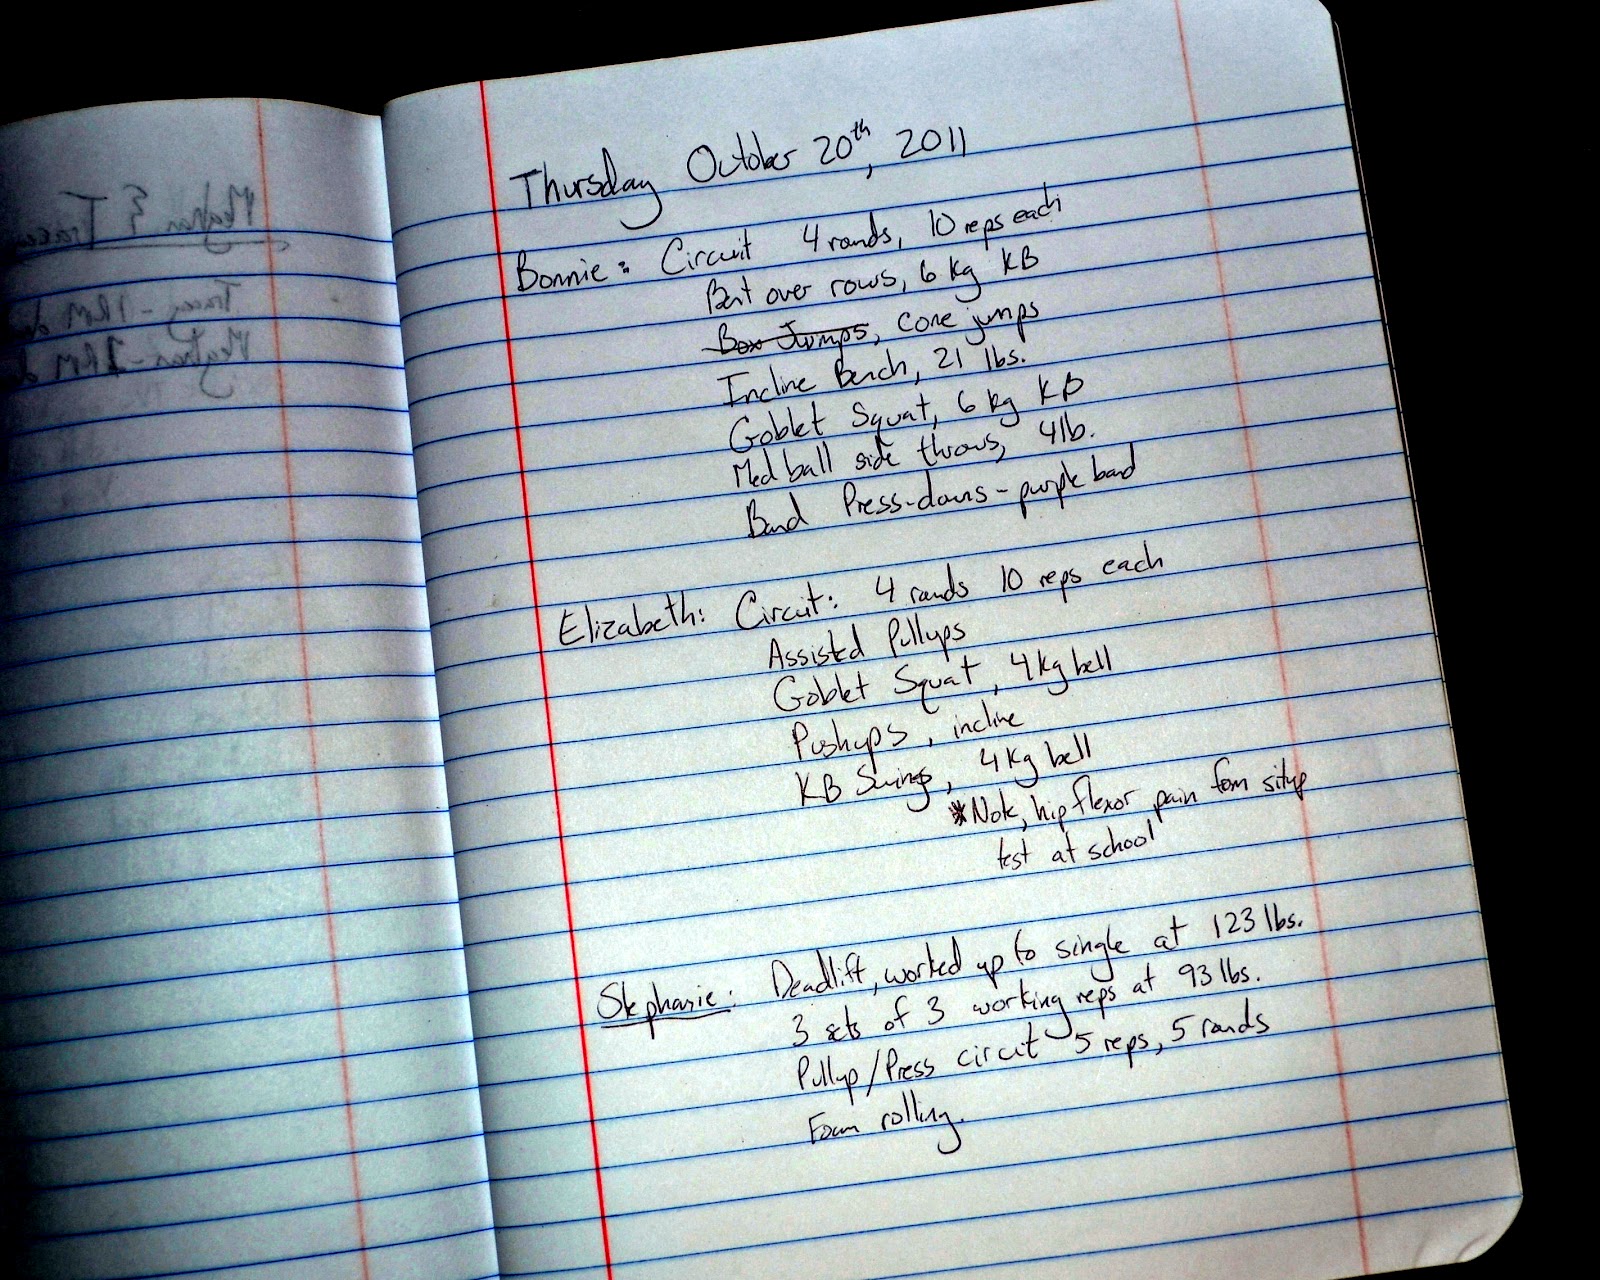 Meghan & Tracey
Tracey - 1RM
Meghan - 1RM
Thursday October 20th, 2011
Bonnie: Circuit 4 rounds, 10 reps each
Bent over rows, 6 kg KB
Box Jumps, Cone jumps
Incline Bench, 21 lbs.
Goblet Squat, 6 kg KB
Med ball side throws, 4lb.
Band Press-downs - purple band
Elizabeth: Circuit: 4 rounds 10 reps each
Assisted Pullups
Goblet Squat, 4kg bell
Pushups, incline
KB Swings, 4kg bell
*Note, hip flexor pain from situp
test at school
Stephanie: Deadlift, worked up to single at 123 lbs.
3 sets of 3 working reps at 93 lbs.
Pullup/Press circuit 5 reps, 5 rounds
Foam rolling.